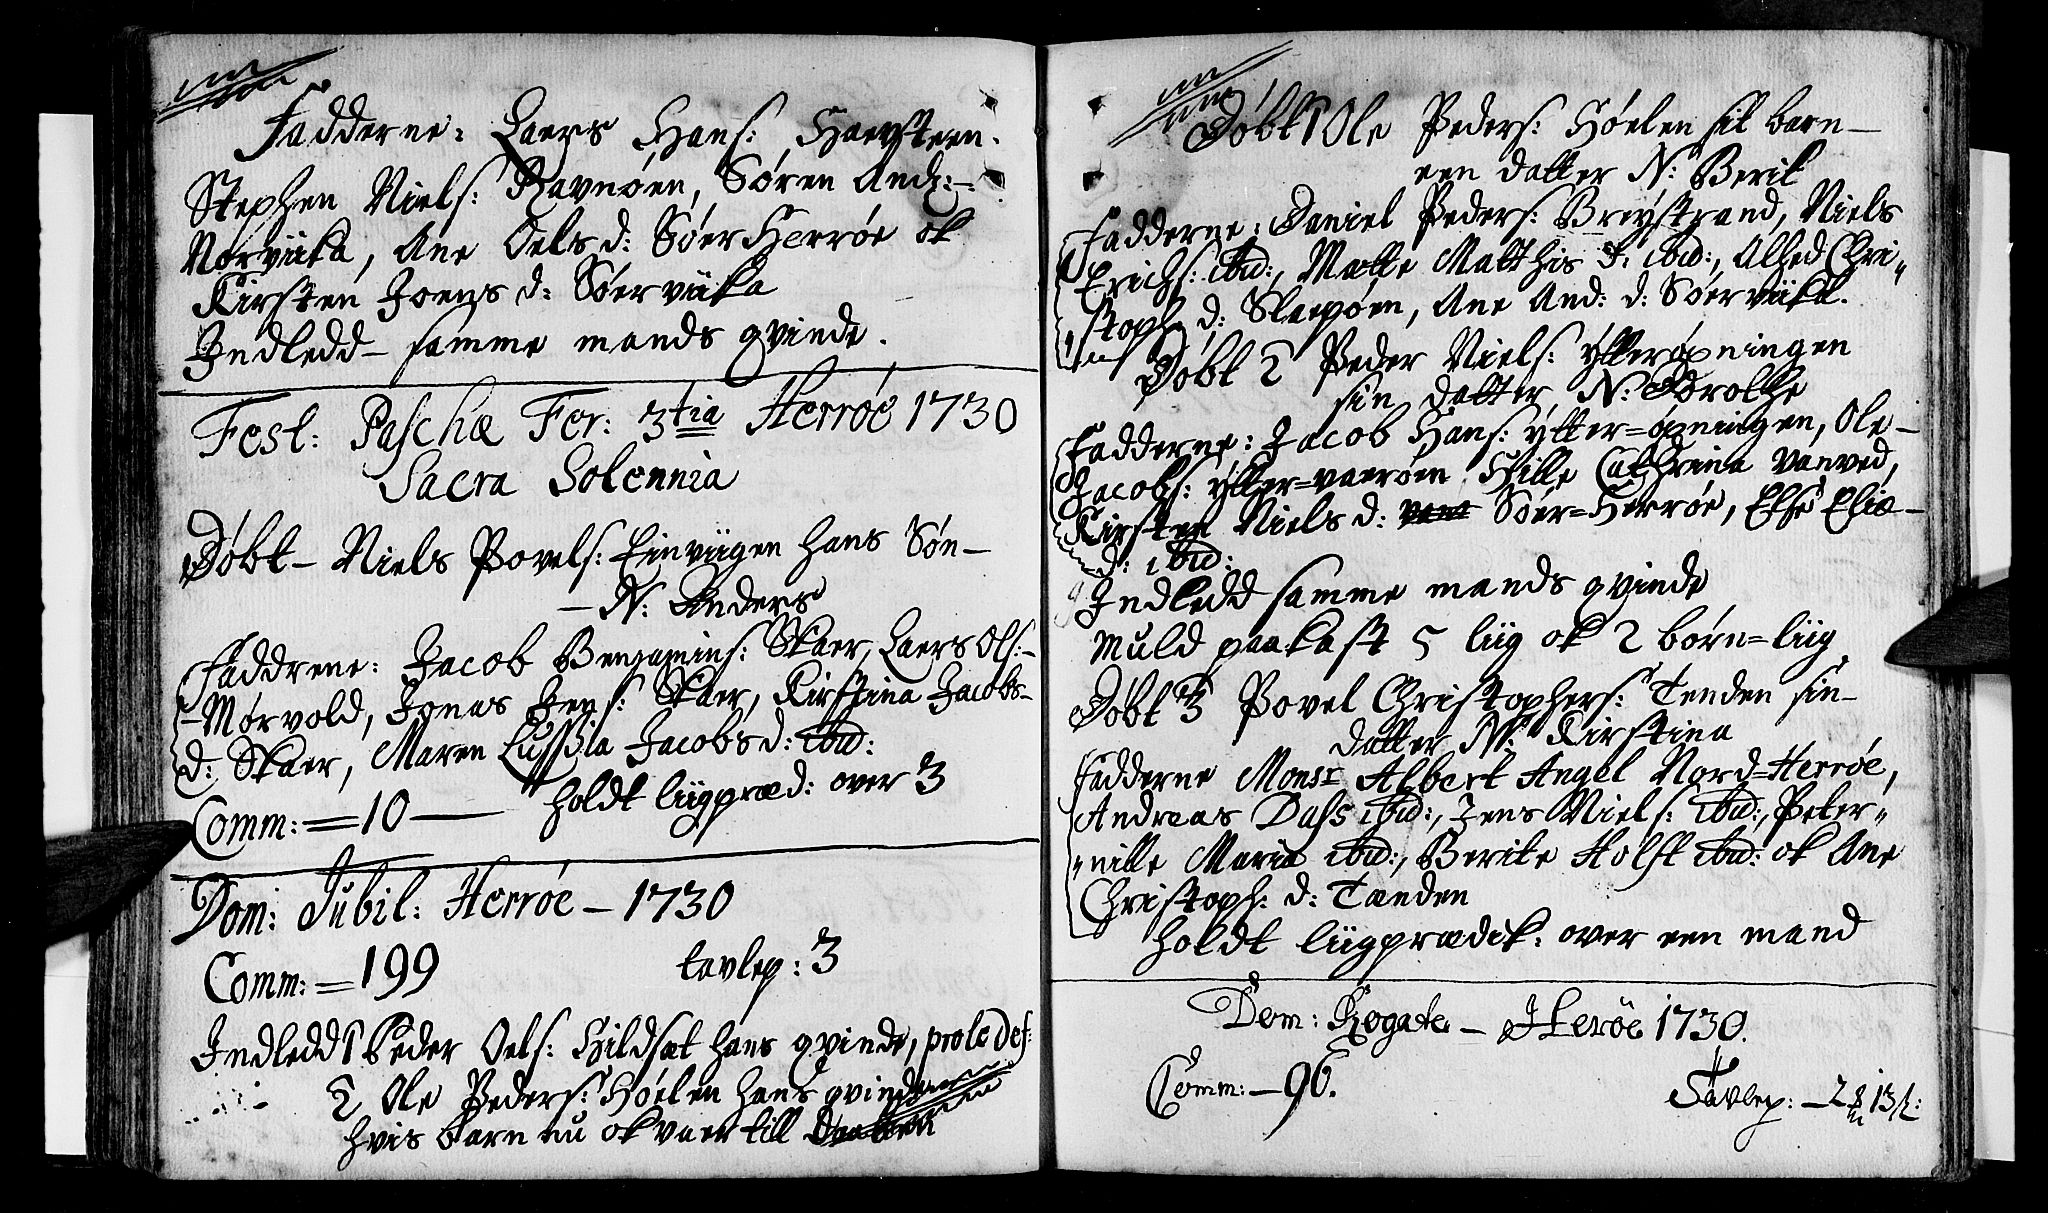 Fadderne: Laers Hans: Haevsteen.
Stephen Niels: Ravnøen, Søren And::
Norviika, Ane Oels d: Søer Herrøe ok
Kirsten Joens d: Søerviika
Indledd – samme mands qvinde.
Fest: Paschæ Fer: 3tia Herrøe 1730
Sacra Solennia
Døbt – Niels Povels: Einviigen hans Søn –
– N: Anders
Faddrene: Jacob Benjamins: Skaer, Laers Ols: –
– Mørvold, Jonas Jens: Skaer, Kirstina Jacobs –
d: Skaer, Maren Lussila Jacobs d: ibid:
Comm: = 10 — holdt liigpræd: over 3
Dom: Jubil: Herrøe – 1730
Comm: = 199 tavlep: 3
Indledd 1 Peder Oels: Hildsæt hans qvinde, prole def:
2 Ole Peders: Høelen hans qvinde
hvis barn nu ok vaer till
Døbt 1 Ole Peders: Høelen sit barn –
een datter N: Berit
Fadderne: Daniel Peders: Breystrand, Niels
Erichs: ibid:, Mette Matthis d: ibid:, Alled Chri"
stoph: d: Slaepøen, Ane And: d: Søerviikt.
Døbt 2 Peder Niels: ytterøpningen
sin datter N: Dorothe
Fadderne: Jacob Hans: ytter=øpningen, Ole –
Jacobs: ytter=vaerøen Hille Cathrina vanved,
Kirsten Niels d: Søer=Herrøe, Else Eliæ –
d: ibid:
Indledd samme mands qvinde
Muld paakast 5 liig ok 2 børn=liig
Døbt 3 Povel Christophers: Tenden sin –
datter N: Kirstina
Fadderne Monsr Albert Angel Nord=Herrøe,
Andreas Dass ibid:, Jens Niels: ibid:, Peter"
"nille Maria ibid:, Berite Holst ibid: ok Ane
Christoph: d: Tænden
holdt liigprædik: over een mand
Dom: Rogate – Herøe 1730.
Comm: – 96. Tavlep: – 2 13 s: